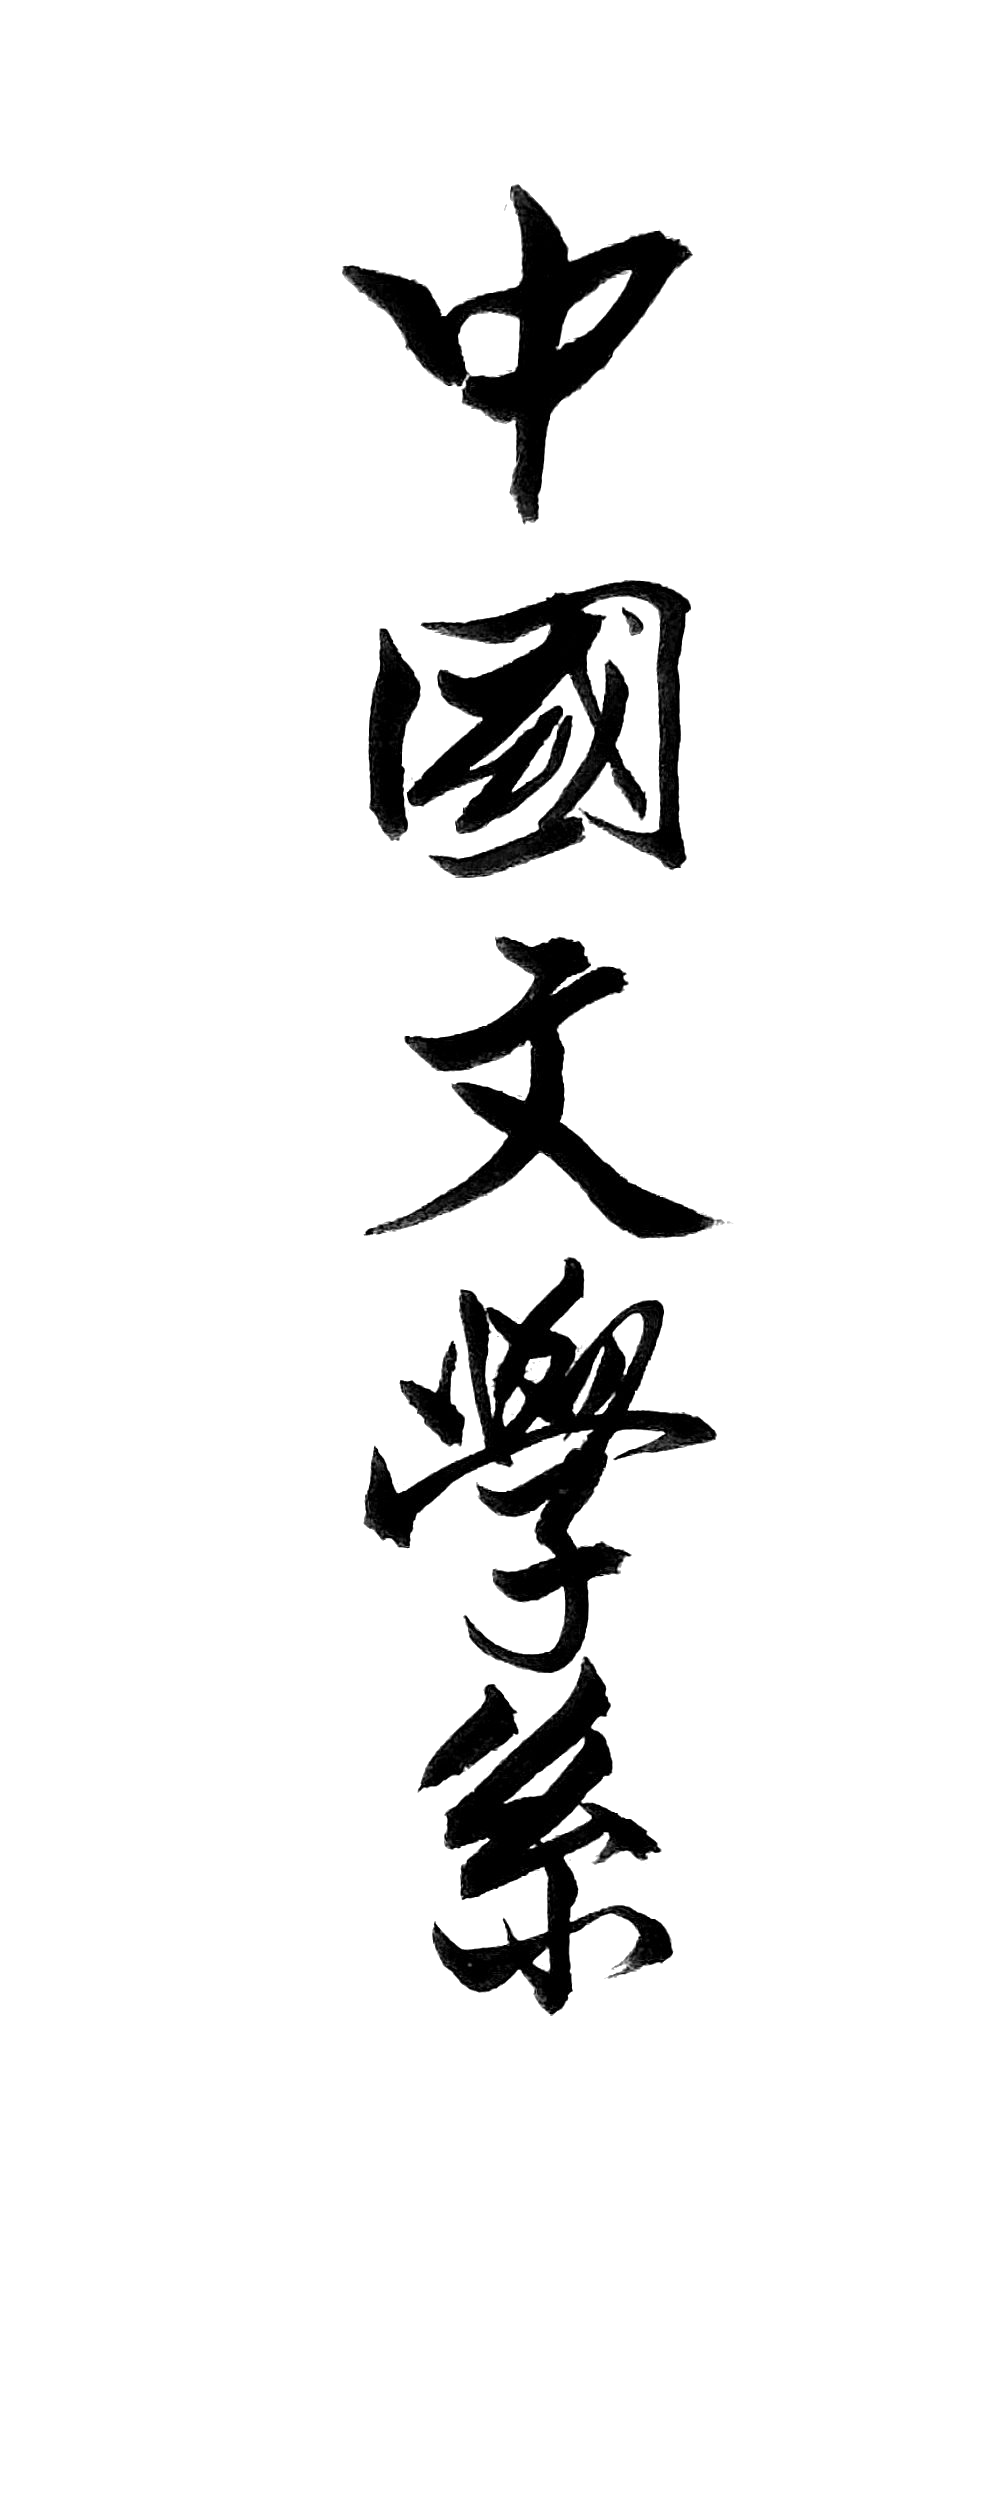 中國文學系